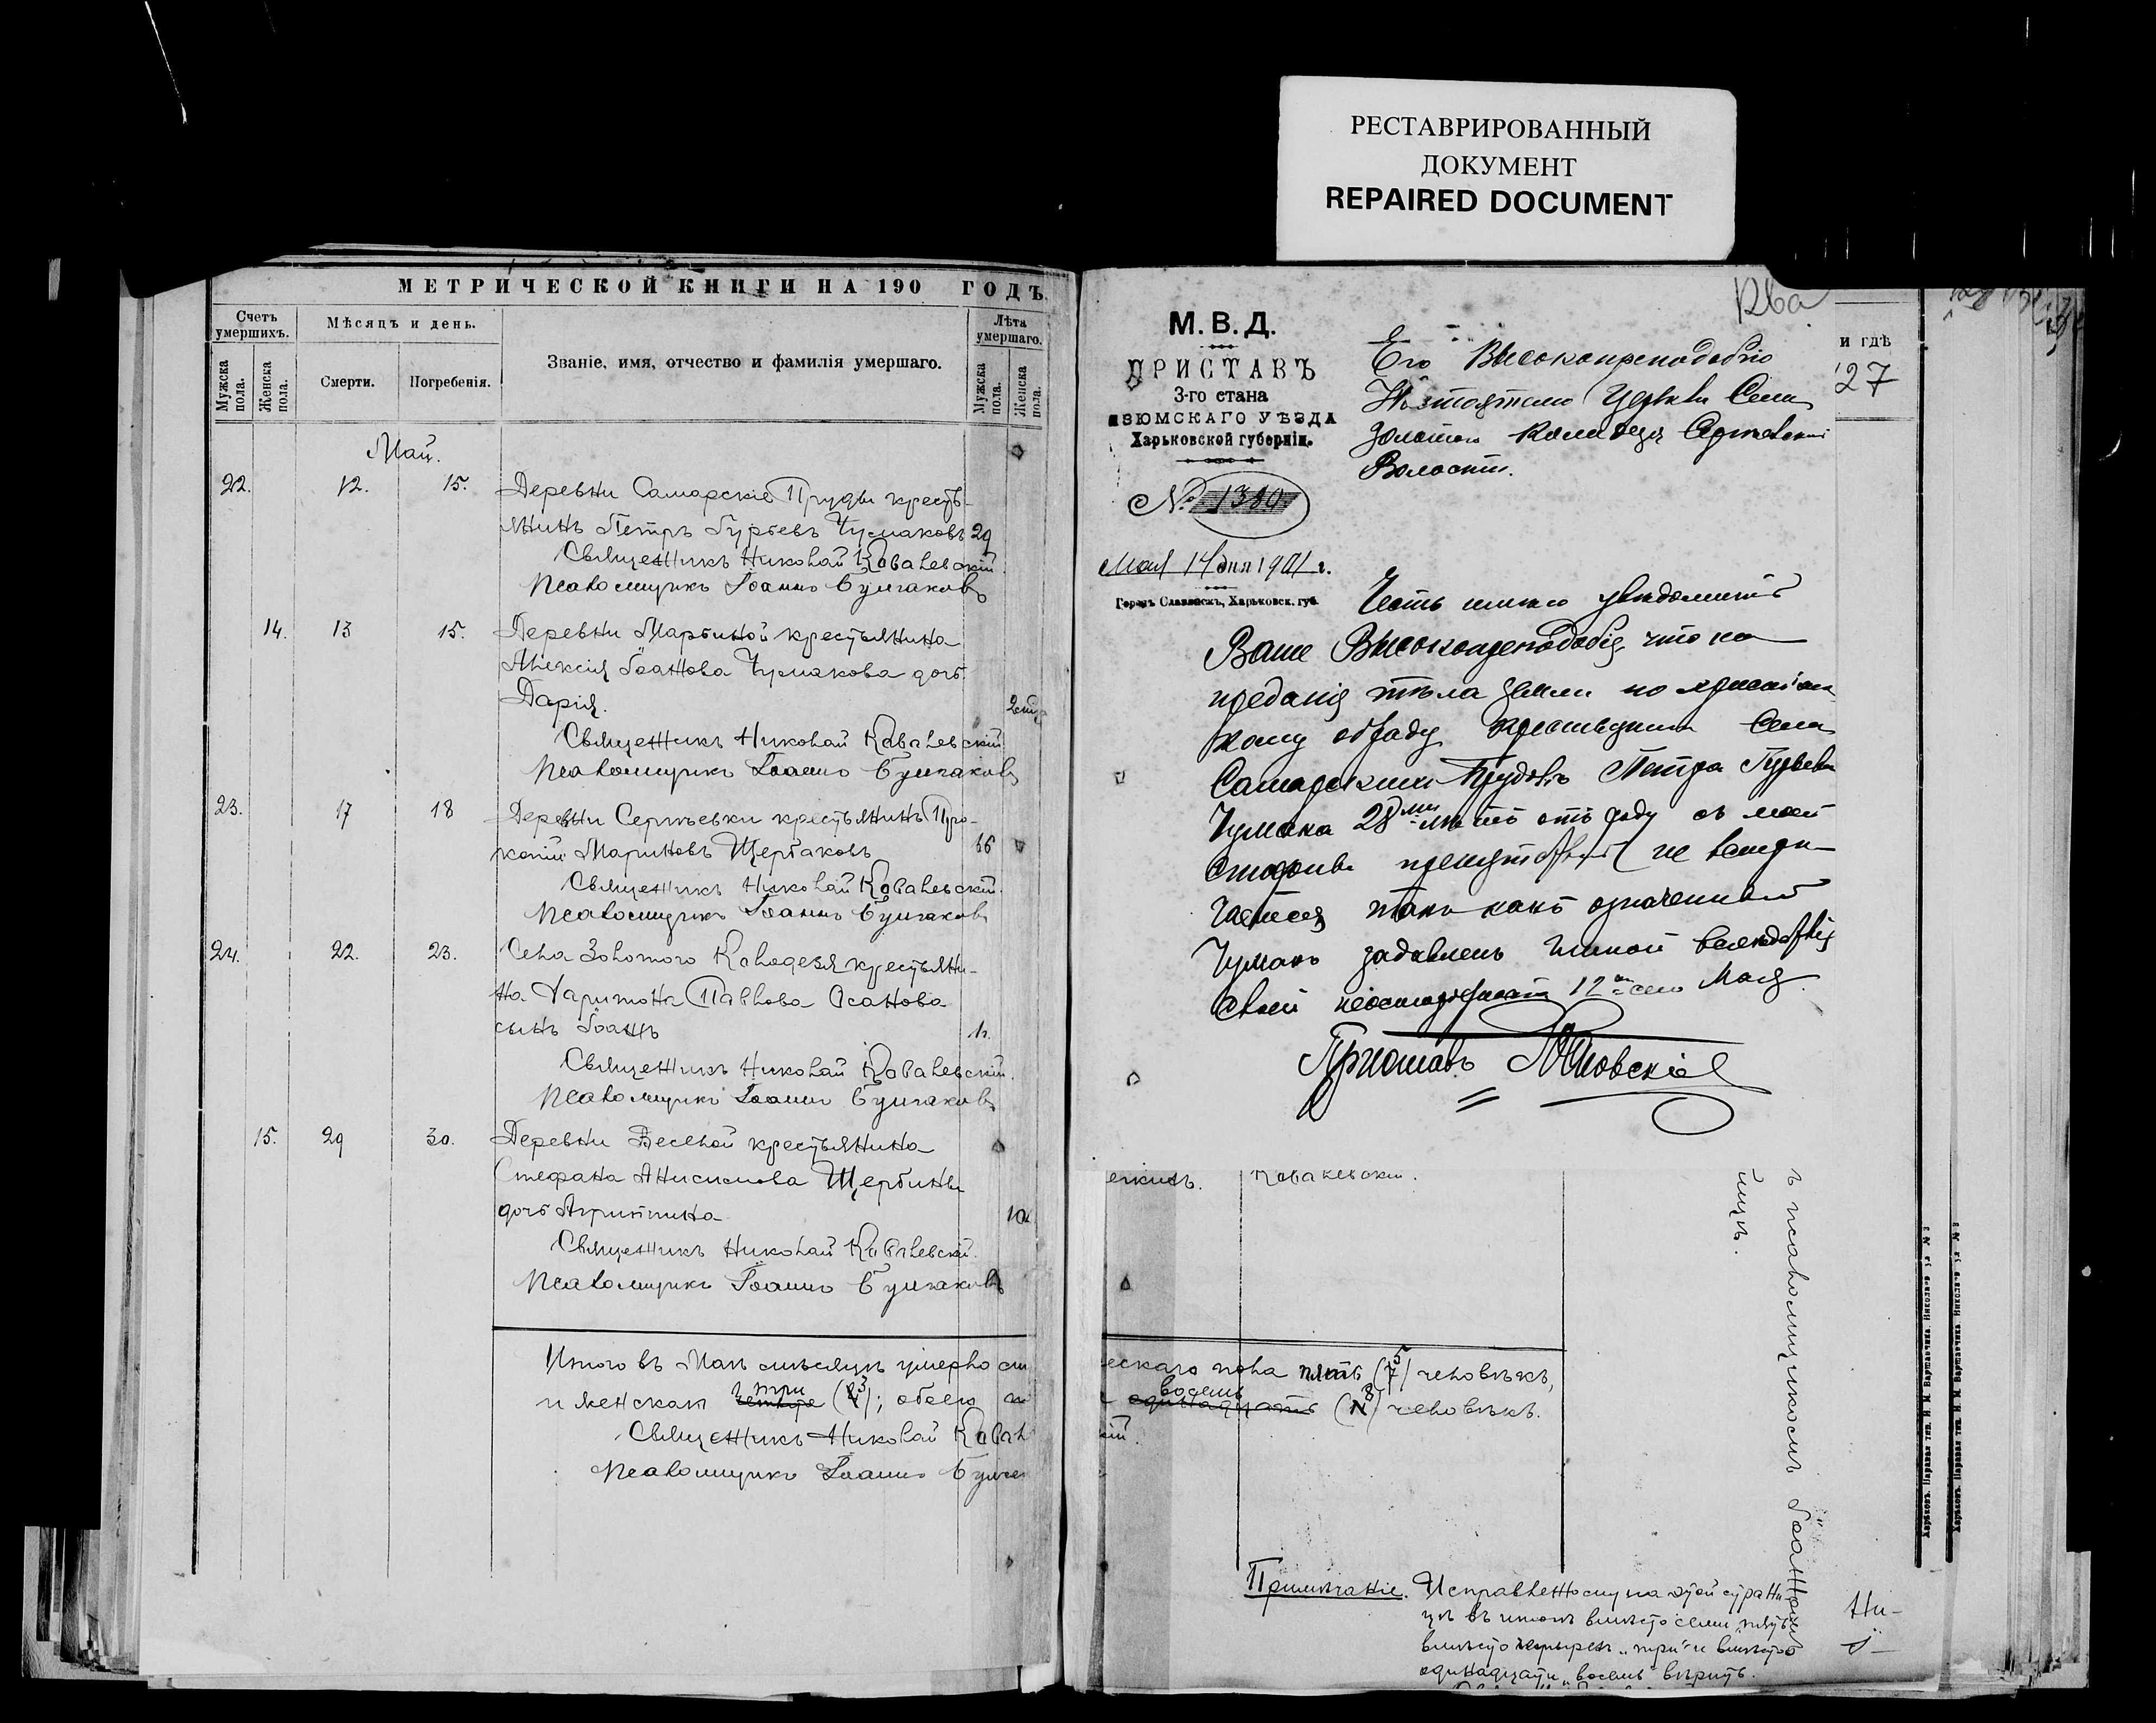 РЕСТАВРИРОВАННЫЙ
ДОКУМЕНТ
REPAIRED DOCUMENT
МЕТРИЧЕСКОЙ КНИГИ НА 190 ГОДЪ
Счетъ умершихъ.
Мѣсяцъ и день.
Лѣта умершаго.
Мужска пола.
Женска пола.
Смерти.
Погребенія.
Званіе, имя, отчество и фамилія умершаго.
Мужска пола.
Женска пола.
Май.
22. 12. 15. Деревни Самарскіе Пруды кресть-
янинъ Петръ Гурьевъ Чумаковъ 29
Священникъ Николай Ковалевскій.
Псаломщикъ Іоаннъ Булгаковъ
14. 13 15. Деревни Марьиной крестьянина
Алексія Іоаннова Чумакова дочь
Дарія.
Священникъ Николай Ковалевскій
Псаломщикъ Іоаннъ Булгаковъ
23. 17 18 Деревни Сергѣевки крестьянинъ Про-
копій Мариновъ Щербаковъ 66
Священникъ Николай Ковалевскій.
Псаломщикъ Іоаннъ Булгаковъ
24. 22. 23. Села Золотого Колодезя крестьяни-
на Харитона Павлова Осанова
сынъ Іоаннъ
Священникъ Николай Ковалевскій.
Псаломщикъ Іоаннъ Булгаковъ
15. 29 30. Деревни Веселой крестьянина
Стефана Анисимова Щербины
дочь Агриппина
Священникъ Николай Ковалевскій.
Псаломщикъ Іоаннъ Булгаковъ
Итого въ Маѣ мѣсяцѣ умерло
и женскаго три (3); обоего
Священникъ Николай Ковал
Псаломщикъ Іоаннъ Булга
126а
М. В. Д.
ПРИСТАВЪ
3-го стана
ИЗЮМСКАГО УѢЗДА
Харьковской губерніи.
№ 1380
Мая 14 дня 1901 г.
Городъ Славянскъ, Харьковск. губ.
Его Высокопреподобію
Настоятелю Церкви Села
Золотого Колодезя Сергѣевской
Волости.
и гдѣ
127
Честь имѣю увѣдомить
Ваше Высокопреподобіе, что къ
преданію тѣла землѣ по христіанс
кому обряду крестьянина Села
Самарскихъ Прудовъ Петра Гурьева
Чумака 28ми лѣтъ отъ роду съ моей
стороны препятствій не встрѣ-
чается такъ какъ означенный
Чумакъ задавленъ глиной вслѣдствіе
своей неосторожности 12го сего Мая.
Приставъ
енникъ. Ковалевскій.
ескаго пола пять (5) человѣкъ,
восемь (8) человѣкъ.
кій.
ъ псаломщикомъ Іоанномъ
щикъ.
Примѣчаніе. Исправленному на этой страни
цѣ въ итогѣ вмѣсто семи „пять"
вмѣсто четырехъ „три" и вмѣсто
одинадцати „восемь" вѣрить.
Ни-
й-
Харьковъ. Паровая тип. И. М. Варшавчика. Никол
Харьковъ. Паровая тип. И. М. Варшавчика. Никол